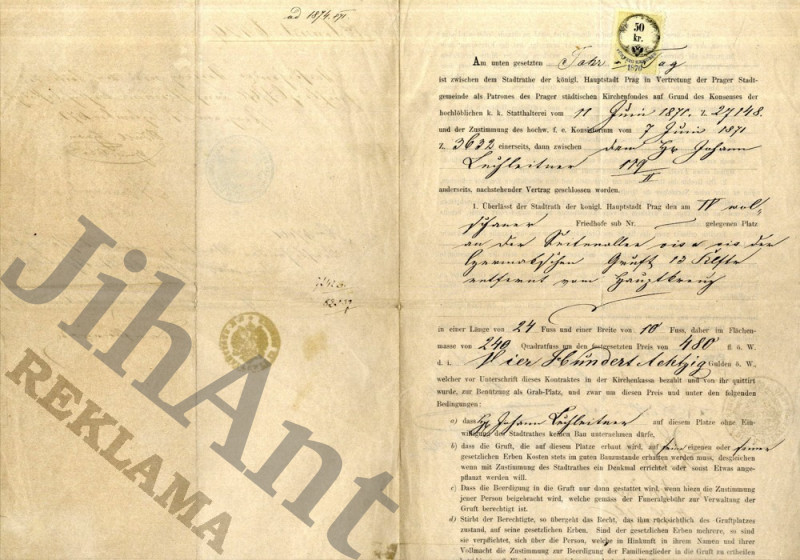 ad 1874.
50
kr.
1870
Am unten gesetzten Jahr u Tag
ist zwischen dem Stadtrathe der königl. Hauptstadt Prag in Vertretung der Prager Stadt-
gemeinde als Patrones des Prager städtischen Kirchenfondes auf Grund des Konsenses der
hochlöblichen k. k. Statthalterei vom 11 Juni 1871. Z. 27148.
und der Zustimmung des hochw. f. e. Konsistorium vom 7 Juni 1871
Z. 3632 einerseits, dann zwischen dem Hp Johann
Luchleitner 119
II
anderseits, nachstehender Vertrag geschlossen worden.
1. Überlässt der Stadtrath der königl. Hauptstadt Prag den am IV wol-
schaner Friedhofe sub Nr. — gelegenen Platz
an der Seitenallee vis a vis der
Gruft 13
entfernt vom Hauptkreuz
in einer Länge von 24 Fuss und einer Breite von 10 Fuss, daher im Flächen-
masse von 240 Quadratfuss um den festgesetzten Preis von 480 fl. ö. W.
d. i. Vier Hundert Achtzig Gulden ö. W.,
welcher vor Unterschrift dieses Kontraktes in der Kirchenkasse bezahlt und von ihr quittirt
wurde, zur Benützung als Grab-Platz, und zwar um diesen Preis und unter den folgenden
Bedingungen:
a) dass Hp Johann Luchleitner auf diesem Platze ohne Ein-
willigung des Stadtrathes keinen Bau unternehmen dürfe,
b) dass die Gruft, die auf diesem Platze erbaut wird, auf seine eigenen oder seiner
gesetzlichen Erben Kosten stets im guten Bauzustande erhalten werden muss, desgleichen
wenn mit Zustimmung des Stadtrathes ein Denkmal errichtet oder sonst Etwas ange-
pflanzt werden will.
c) Dass die Beerdigung in die Gruft nur dann gestattet wird, wenn hiezu die Zustimmung
jener Person beigebracht wird, welche gemäss der Funeralgebühr zur Verwaltung der
Gruft berechtigt ist.
d) Stirbt der Berechtigte, so übergeht das Recht, das ihm rücksichtlich des Gruftplatzes
zustand, auf seine gesetzlichen Erben. Sind der gesetzlichen Erben mehrere, so sind
sie verpflichtet, sich über die Person, welche in Hinkunft in ihrem Namen und ihrer
Vollmacht die Zustimmung zur Beerdigung der Familienglieder in die Gruft zu ertheilen
JihAnt
REKLAMA